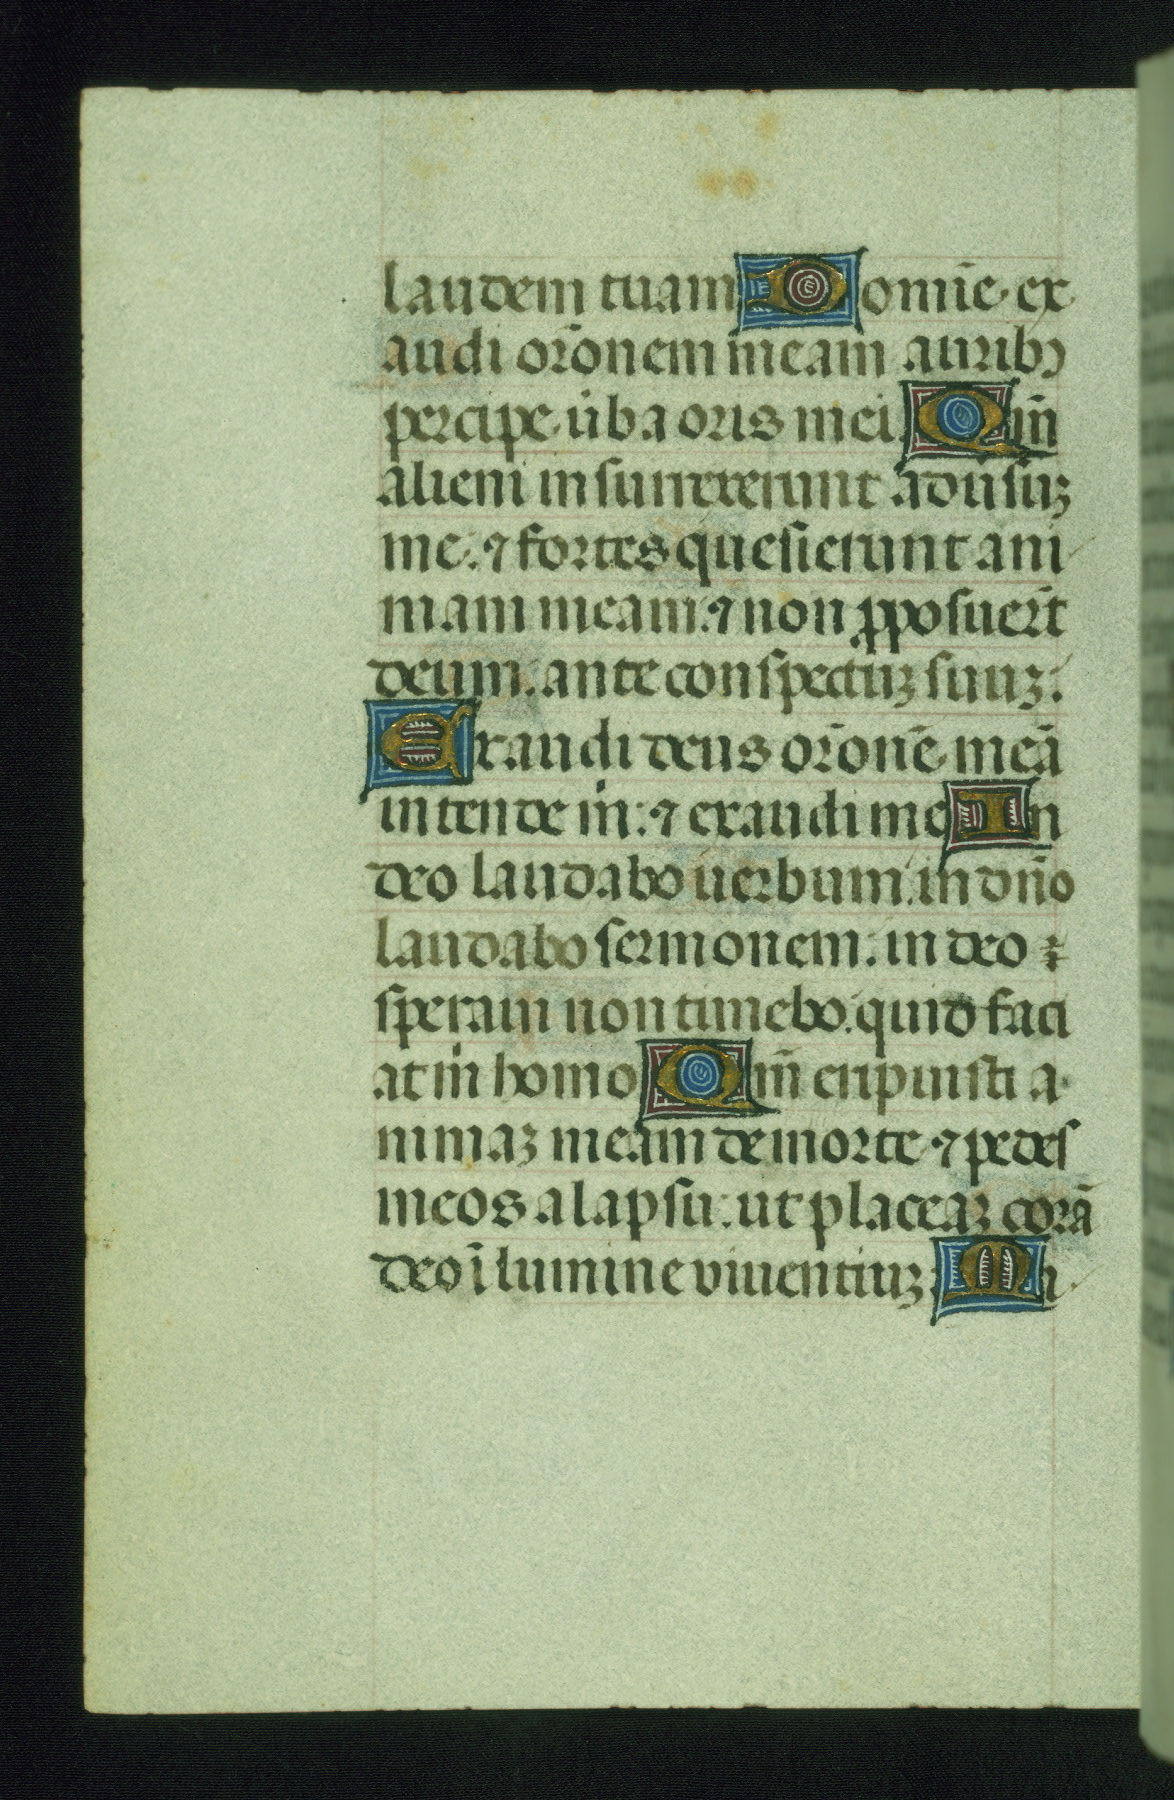 laudem tuam Domīe ex
audi or̄onem meam auribꝫ
percipe ūba oris mei Qm̄
alieni insurrexerunt aduͥsuꝫ
me: ⁊ fortes quesierunt ani
mam meam: ⁊ non ꝓposuerūt
deum. ante conspectuꝫ suuꝫ:
Exaudi deus or̄onē meā
intende m̍: ⁊ exaudi me In
deo laudabo uerbum. in dn̄o
laudabo sermonem: in deo
speraui non timebo. quid faci
at m̍ homo Qm̄ eripuisti a
nimaꝫ meam de morte ⁊ pedes
meos a lapsu: ut placeaꝫ corā
deo ī lumine viuentiuꝫ Mi